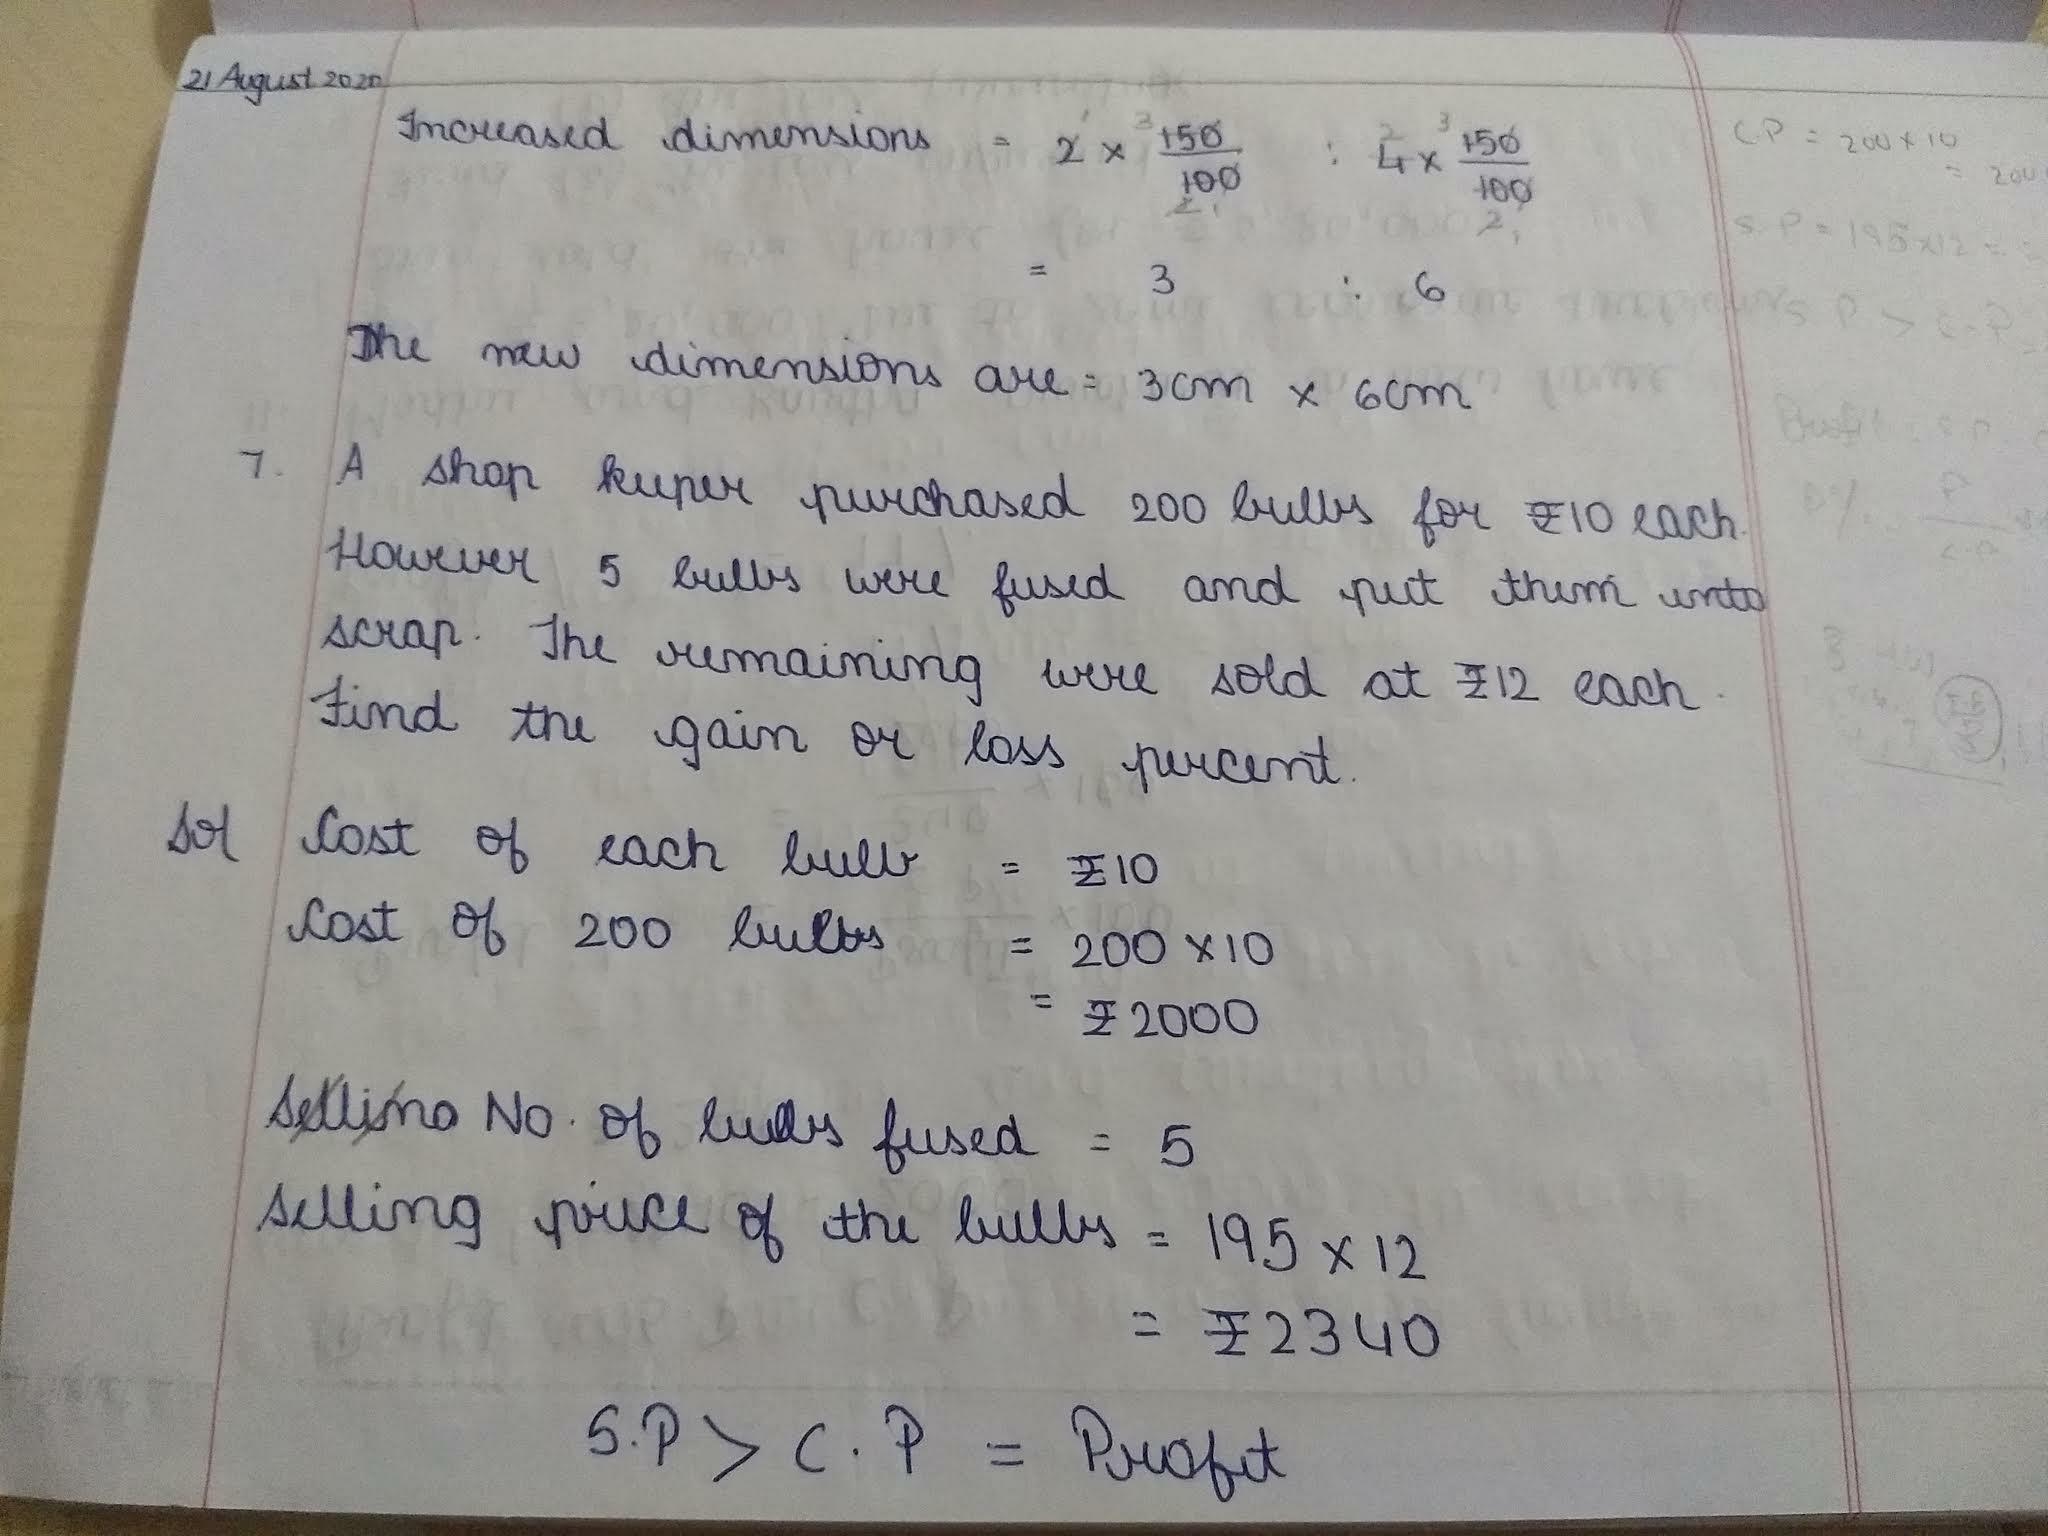 21 August 2020
Increased dimensions = 2 × 150/100 : 4 × 150/100
= 3 : 6
The new dimensions are = 3cm × 6cm
7. A shop keeper purchased 200 bulbs for ₹10 each.
However 5 bulbs were fused and put them into
scrap. The remaining were sold at ₹12 each.
Find the gain or loss percent.
Sol Cost of each bulb = ₹10
Cost of 200 bulbs = 200 × 10
= ₹2000
No. of bulbs fused = 5
Selling price of the bulbs = 195 × 12
= ₹2340
S.P > C.P = Profit
C.P = 200 × 10
= 200
S.P = 195 × 12 =
S.P > C.P